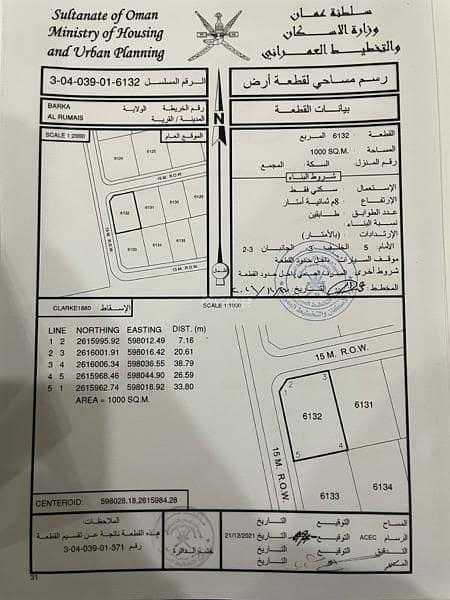 Sultanate of Oman
Ministry of Housing
and Urban Planning
سلطنة عمان
وزارة الاسكان
والتخطيط العمراني
3-04-039-01-6132 الرقم المسلسل
رسم مساحي لقطعة أرض
BARKA
رقم الخريطة
الولاية
AL RUMAIS
المدينة / القرية
SCALE 1:2000
الموقع العام
N
الشمال
15 M. R.O.W.
15 M. R.O.W.
6132
بيانات القطعة
القطعة 6132 المربع
المساحة 1000 SQ.M.
رقم المنزل السكة المجمع
شروط البناء
الاستعمال سكني فقط
الارتفاع 8م ثمانية أمتار
عدد الطوابق طابقين
نسبة البناء
الإرتدادات (بالأمتار)
الأمام 5 الخلف 3 الجانبان 2-3
موقف السيارات داخل حدود القطعة
شروط أخرى
المخطط التاريخ
CLARKE1880
الإسقاط
SCALE 1:1000
LINE NORTHING EASTING DIST. (m)
1 2 2615995.92 598012.49 7.16
2 3 2616001.91 598016.42 20.61
3 4 2616006.34 598036.55 38.79
4 5 2615968.46 598044.90 26.59
5 1 2615962.74 598018.92 33.80
AREA = 1000 SQ.M.
15 M. R.O.W.
1
2
3
4
5
6132
6131
15 M. R.O.W.
6133
6134
CENTEROID: 598028.18,2615984.28
الملاحظات
هذه القطعة ناتجة عن تقسيم القطعة
رقم 3-04-039-01-371
ختم الدائرة
المساح التوقيع التاريخ
الرسام ACEC التوقيع التاريخ 21/12/2021
التدقيق التوقيع التاريخ
31